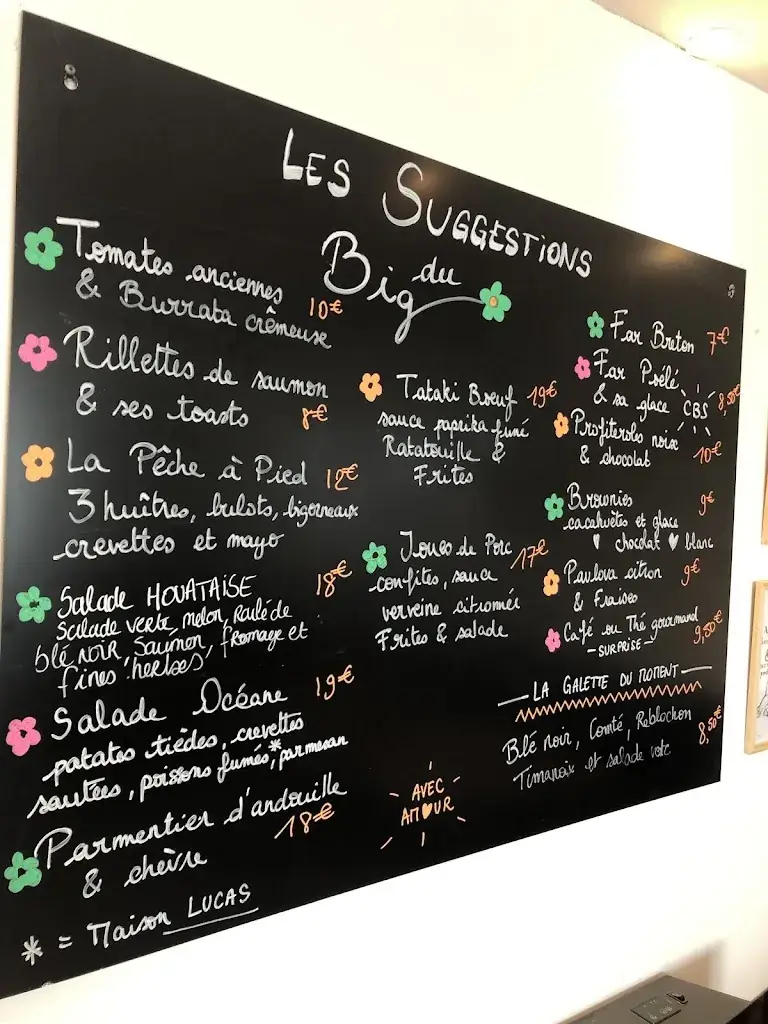 LES SUGGESTIONS
du
Big
Tomates anciennes
& Burrata crêmeuse 10€
Rillettes de saumon
& ses toasts 8€
La Pêche à Pied 12€
3 huîtres, bulots, bigorneaux
crevettes et mayo
Salade HOUATAISE 18€
Salade verte, melon, Roulé de
blé noir, Saumon, fromage et
fines herbes
Salade Océane 19€
patates tièdes, crevettes
sautées, poissons fumés*, parmesan
Parmentier d'andouille
& chèvre 18€
* = Maison LUCAS
Tataki Boeuf 19€
sauce paprika fumé
Ratatouille &
Frites
Joues de Porc 17€
confites, sauce
verveine citronnée
Frites & salade
AVEC
AMOUR
Far Breton 7€
Far Poêlé
& sa glace CBS 8,50€
Profiteroles noix
& chocolat 10€
Brownies 9€
cacahuètes et glace
chocolat blanc
Pavlova citron 9€
& Fraises
Café ou Thé gourmand 9,50€
- SURPRISE -
LA GALETTE DU MOMENT
Blé noir, Comté, Reblochon 8,50€
Timanoix et salade verte